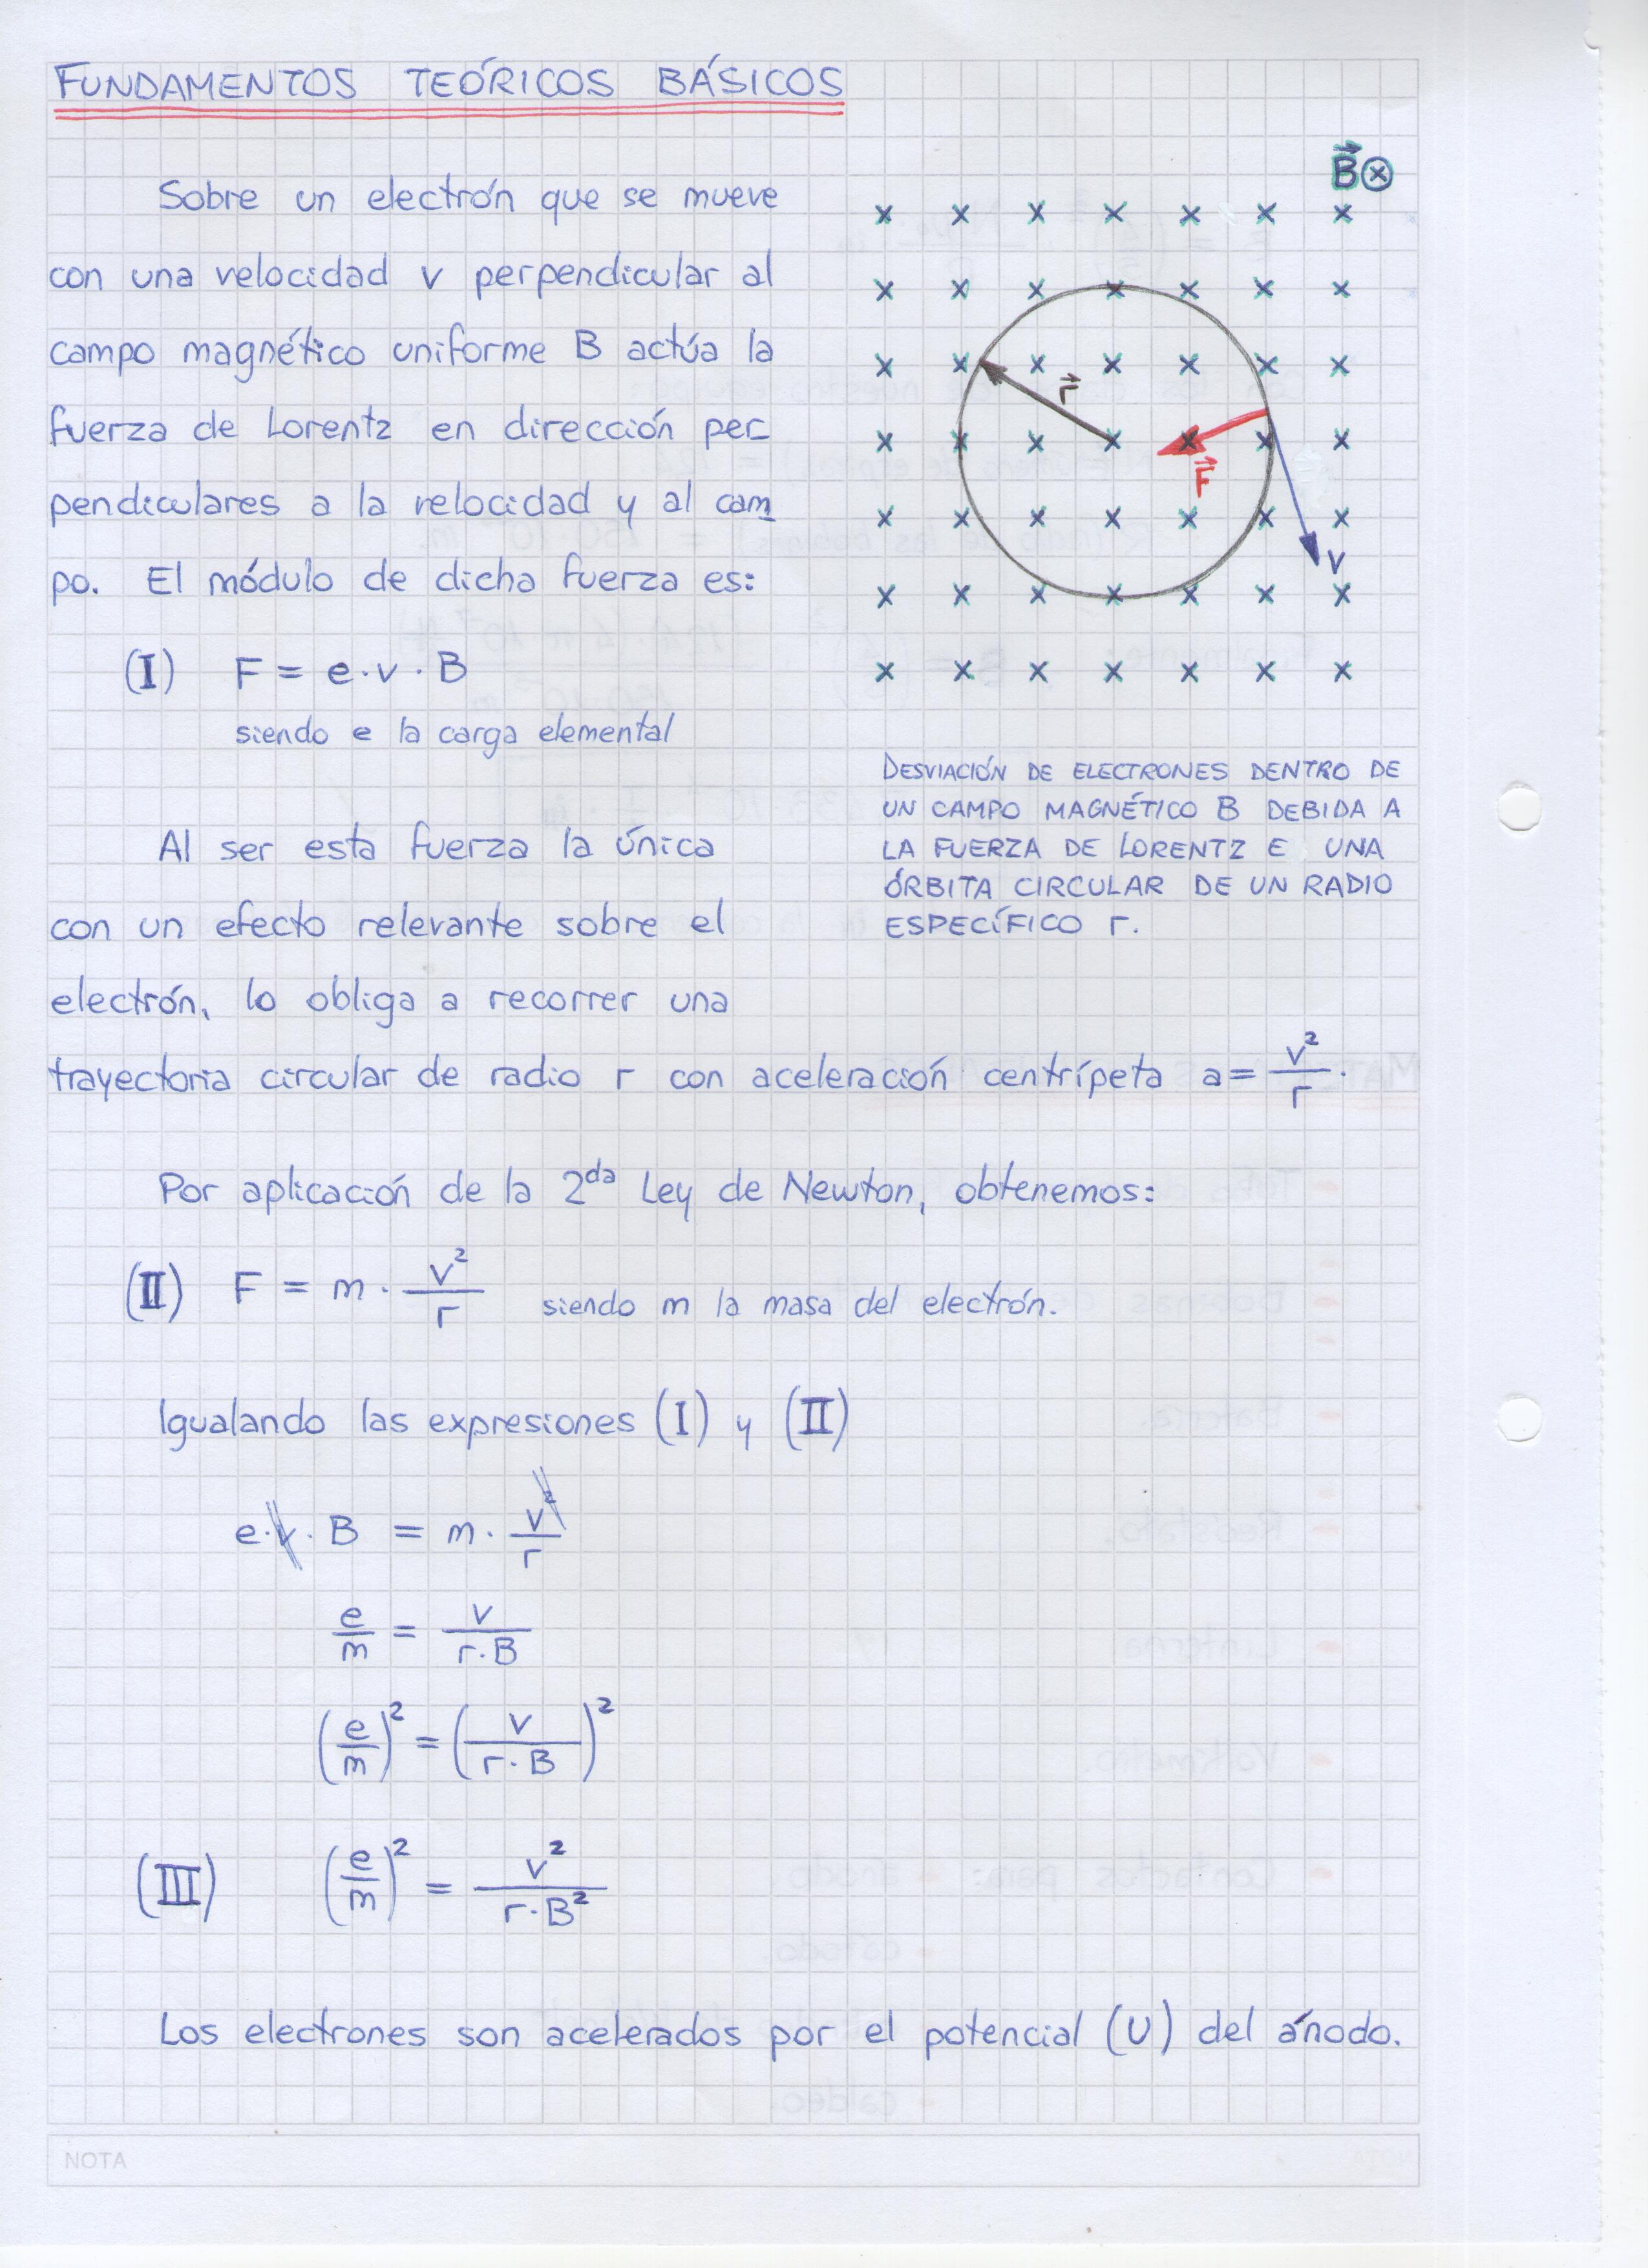 FUNDAMENTOS TEÓRICOS BÁSICOS
Sobre un electrón que se mueve
con una velocidad v perpendicular al
campo magnético uniforme B actúa la
fuerza de Lorentz en dirección per
pendiculares a la velocidad y al cam
po. El módulo de dicha fuerza es:
(I) F = e·v·B
siendo e la carga elemental
B⃗ ⊗
x x x x x x x
x x x x x x x
x x x x x x x
r⃗
x x x x x x x
F⃗
x x x x x x x
v
x x x x x x x
x x x x x x x
DESVIACIÓN DE ELECTRONES DENTRO DE
UN CAMPO MAGNÉTICO B DEBIDA A
LA FUERZA DE LORENTZ E UNA
ÓRBITA CIRCULAR DE UN RADIO
ESPECÍFICO r.
Al ser esta fuerza la única
con un efecto relevante sobre el
electrón, lo obliga a recorrer una
trayectoria circular de radio r con aceleración centrípeta a = v²/r.
Por aplicación de la 2da Ley de Newton, obtenemos:
(II) F = m · v²/r siendo m la masa del electrón.
Igualando las expresiones (I) y (II)
e·v·B = m · v²/r
e/m = v/(r·B)
(e/m)² = (v/(r·B))²
(III) (e/m)² = v²/(r·B²)
Los electrones son acelerados por el potencial (U) del ánodo.
NOTA